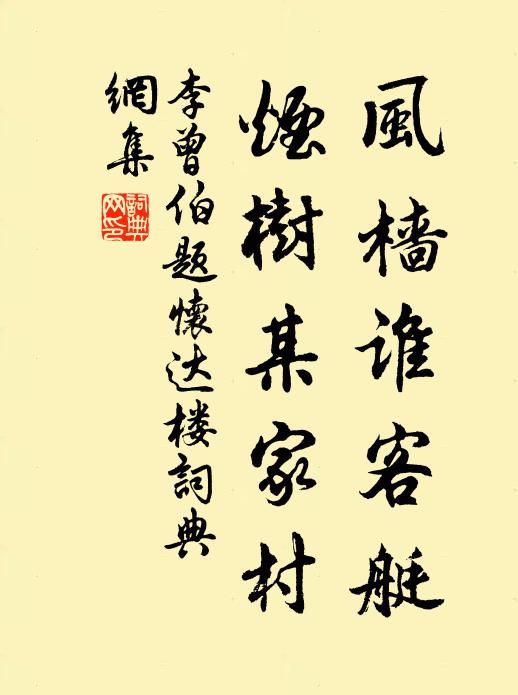 風檣谁客艇
煙樹某家村
李曾伯題懷达楼詞典
網集
詞典网印